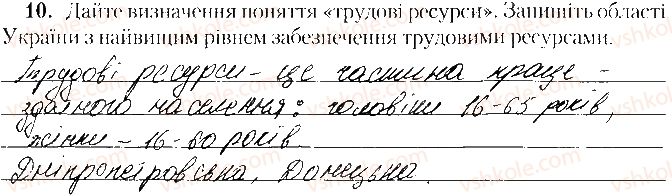 10. Дайте визначення поняття «трудові ресурси». Запишіть області
України з найвищим рівнем забезпечення трудовими ресурсами.
Трудові ресурси – це частина праце –
здатного населення: чоловіки 16-65 років,
жінки – 16-60 років.
Дніпропетровська, Донецька.